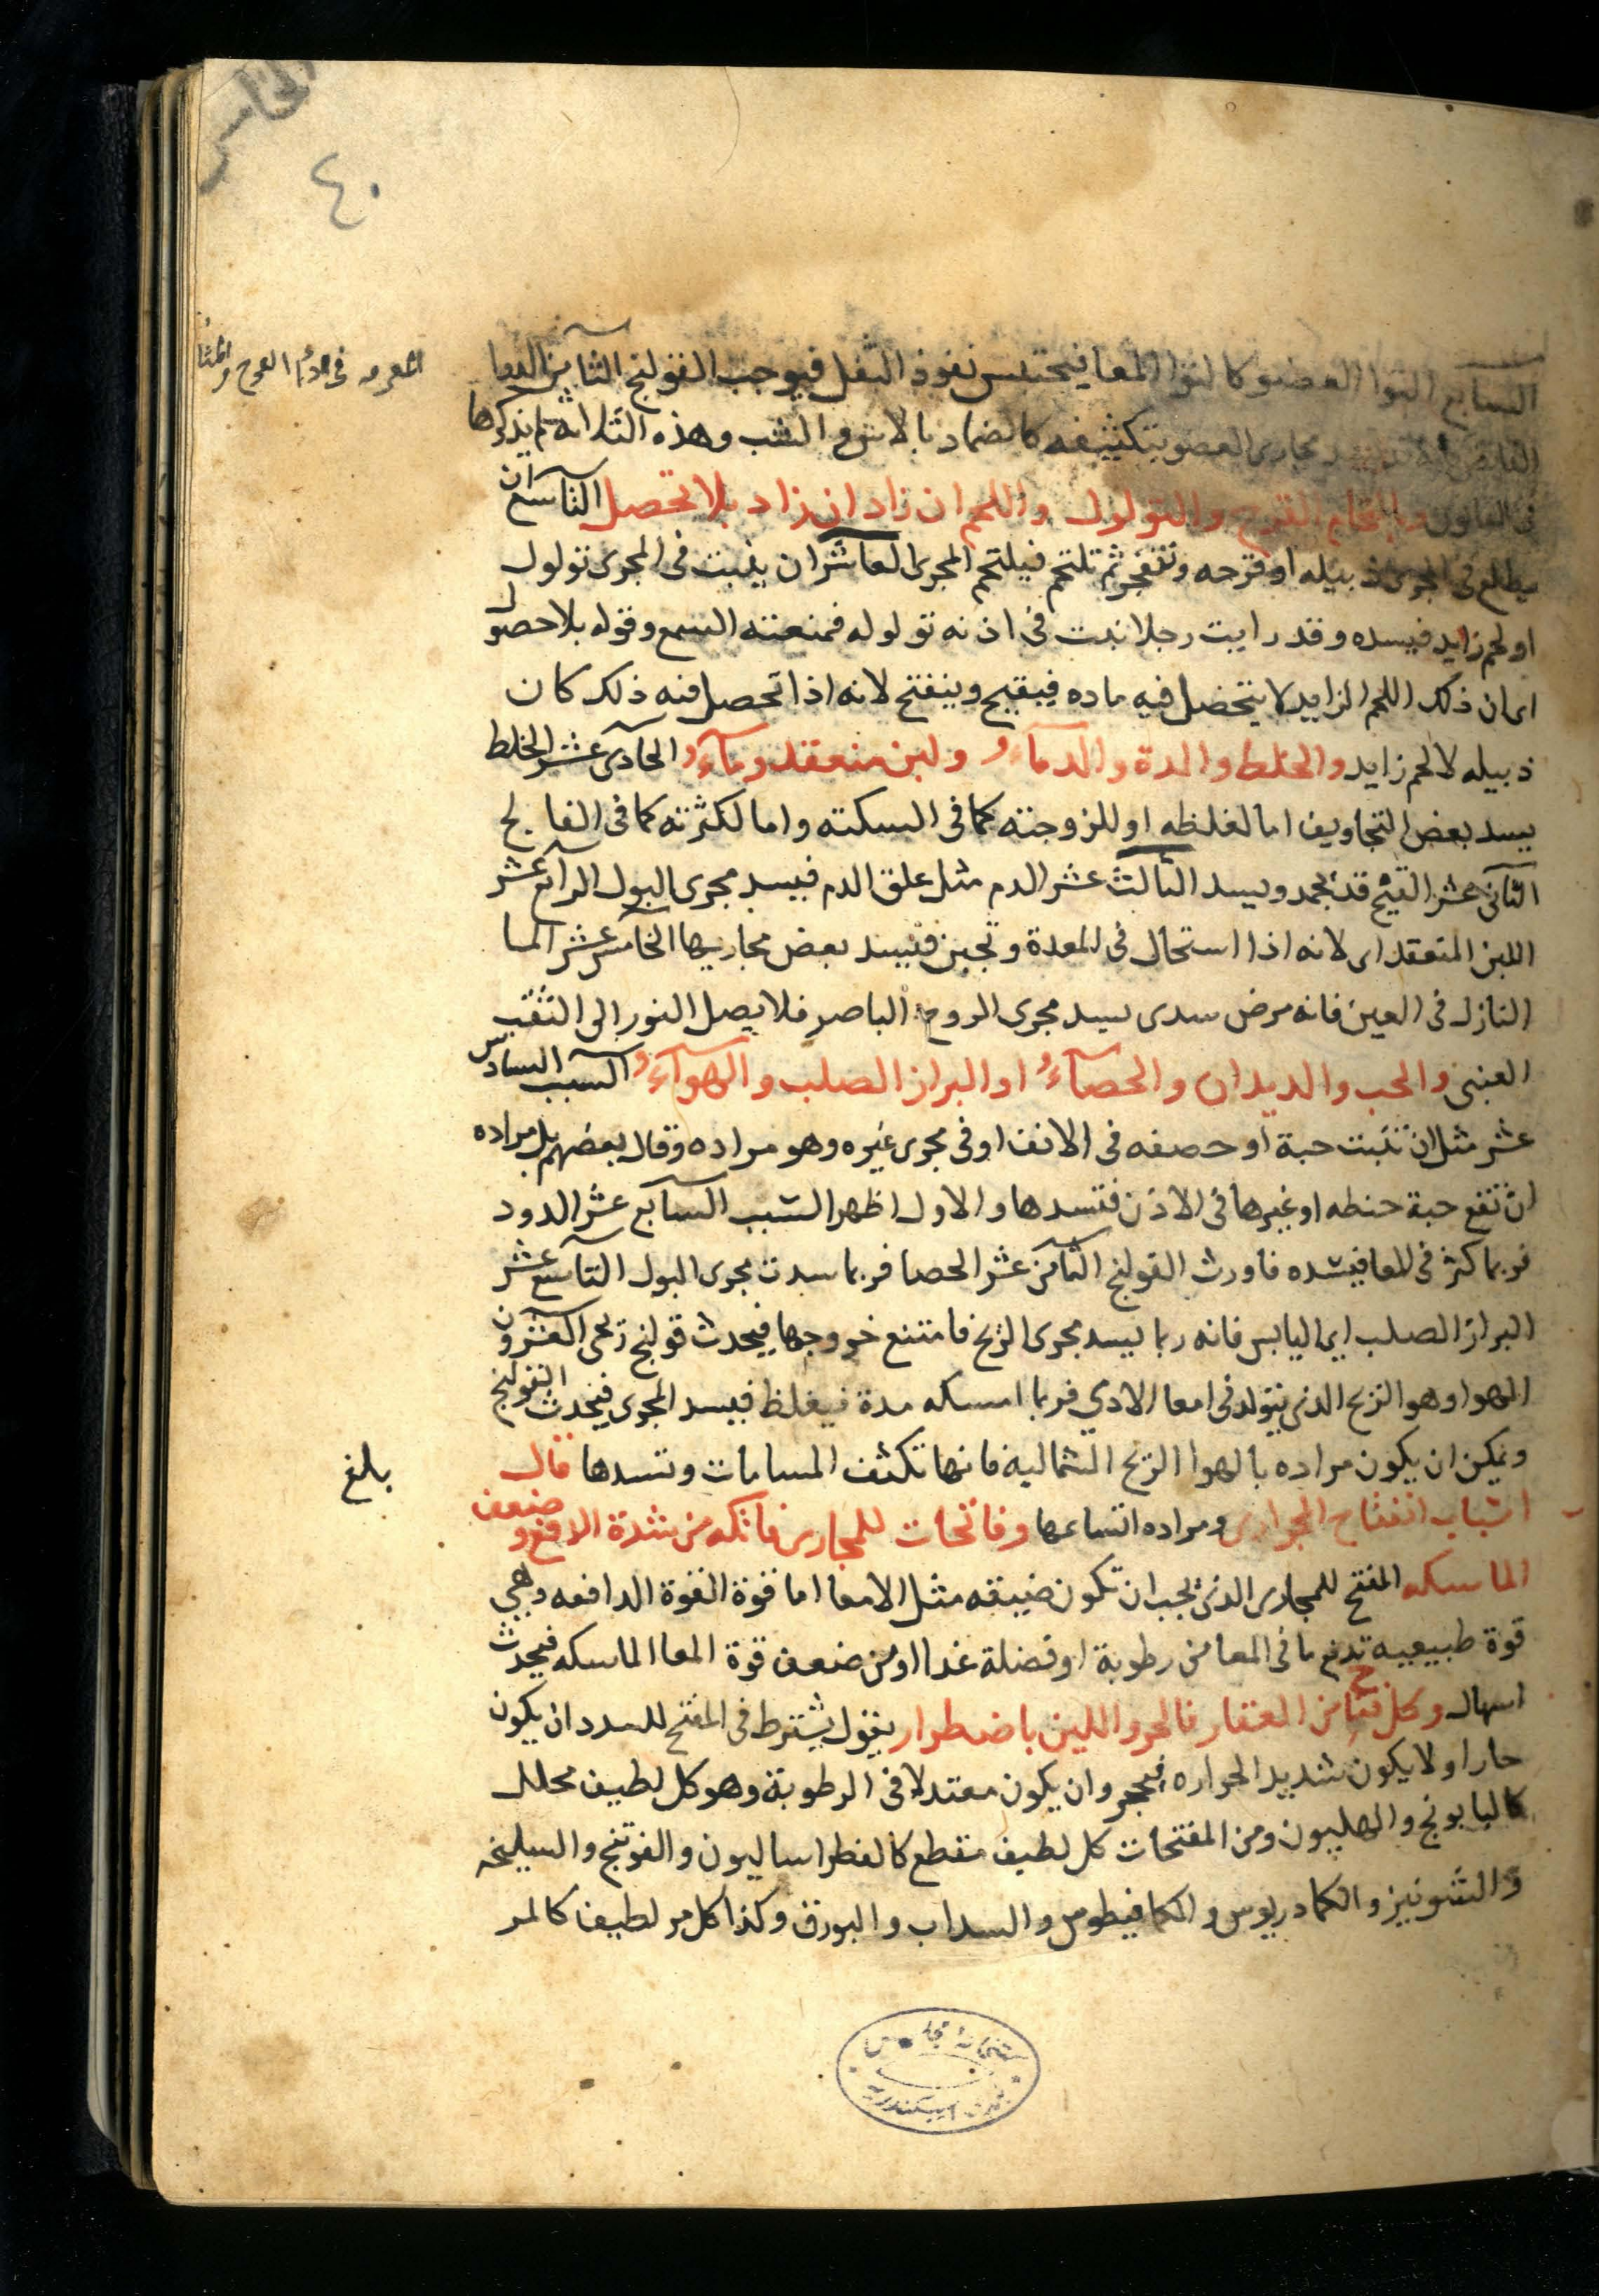 الخامس
٤٠
السابع التوا العضو كالتوا المعا فيحتبس نفوذ الثفل فيوجب القولنج الثامن الدوا
القابض مجارى العضو بتكثيفه كالضماد بالاس والشب وهذه الثلاثة لم يذكرها
فى القانون والتحام القرح والتولول واللحم ان زاد ان زاد بلا تحصل التاسع ان
يطلع فى المجرى دبيله او قرحه وتنفجر ثم تلتحم فيلتحم المجرى العاشر ان ينبت فى المجرى تولول
او لحم زايد فيسده وقد رايت رجلا نبت فى اذنه تولوله فمنعته السمع وقوله بلا حصول
اى ان ذلك اللحم الزايد لا يتحصل فيه ماده فيقيح وينفتح لانه اذا تحصل فيه ذلك كان
دبيله لا لحم زايد والخلط والمدة والدماءُ ولبن منعقد وماءُ الحادى عشر الخلط
يسد بعض التجاويف اما لغلظه او للزوجته كما فى السكته واما لكثرته كما فى الفالج
الثانى عشر القيح قد يجمد ويسد الثالث عشر الدم مثل علق الدم فيسد مجرى البول الرابع عشر
اللبن المنعقد اى لانه اذا استحال فى المعدة وتجبن فيسد بعض مجاريها الخامس عشر الما
النازل فى العين فانه مرض سدى يسد مجرى الروح الباصر فلا يصل النور الى الثقب
العنبى والحب والديدان والحصاءُ او البراز الصلب والهواءُ السبب السادس
عشر مثل ان تنبت حبة او حصفه فى الانف او فى مجرى غيره وهو مراده وقال بعضهم بل مراده
ان تقع حبة حنطه او غيرها فى الاذن فتسدها والاول اظهر السبب السابع عشر الدود
فربما كثر فى المعا فيسده فاورث القولنج الثامن عشر الحصا فربما سدت مجرى البول التاسع عشر
البراز الصلب اى اليابس فانه ربما يسد مجرى الريح فامتنع خروجها فيحدث قولنج ريحى العشرون
الهوا وهو الريح الذى يتولد فى امعا الادمي فربما امسكه مدة فيغلظ فيسد المجرى فيحدث القولنج
ويمكن ان يكون مراده بالهوا الريح الشماليه فانها تكثف المسامات وتسدها قال
بلغ
اسباب انفتاح المجارى ومراده اتساعها وفاتحات للمجارى فاتكه من شدة الدفع وضعف
الماسكه المفتح للمجارى الذى يجب ان تكون ضيقه مثل الامعا اما قوة القوة الدافعه وهي
قوة طبيعيه تدفع ما فى المعا من رطوبة او فضلة غدا او من ضعف قوة المعا الماسكه فيحدث
اسهال وكل فتاح من العقار فالحر واللين باضطرار يقول يشترط فى المفتح للسدد ان يكون
حارا ولا يكون شديد الحراره فيحجر وان يكون معتدلا فى الرطوبة وهو كل لطيف محلل
كالبابونج والهليون ومن المفتحات كل لطيف مقطع كالفطراساليون والفوتنج والسليخه
والشونيز والكمادريوس والكمافيطوس والسداب والبورق وكذا كل مر لطيف كالمر
كتبخانة مجلس
بلدى اسكندرية